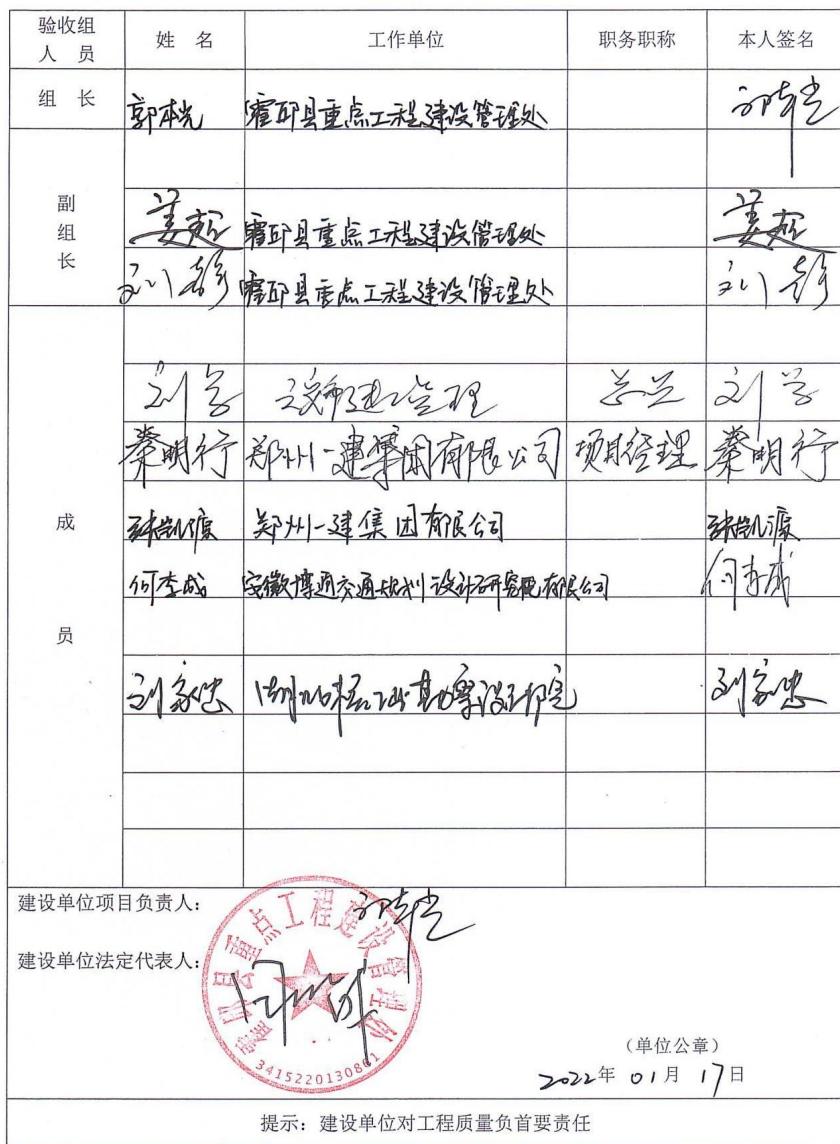 验收组
人 员
姓 名
工作单位
职务职称
本人签名
组 长
郭本光 霍邱县重点工程建设管理处
副
组
长
姜超 霍邱县重点工程建设管理处 姜超
霍邱县重点工程建设管理处
成
员
刘学 刘学
秦明行 郑州一建集团有限公司 项目经理 秦明行
郑州一建集团有限公司
何李成 安徽博通交通规划设计研究院有限公司 何李成
刘家忠 勘察设计院 刘家忠
建设单位项目负责人:
建设单位法定代表人:
霍邱县重点工程建设管理处
(单位公章)
2022年 01月 17日
提示: 建设单位对工程质量负首要责任